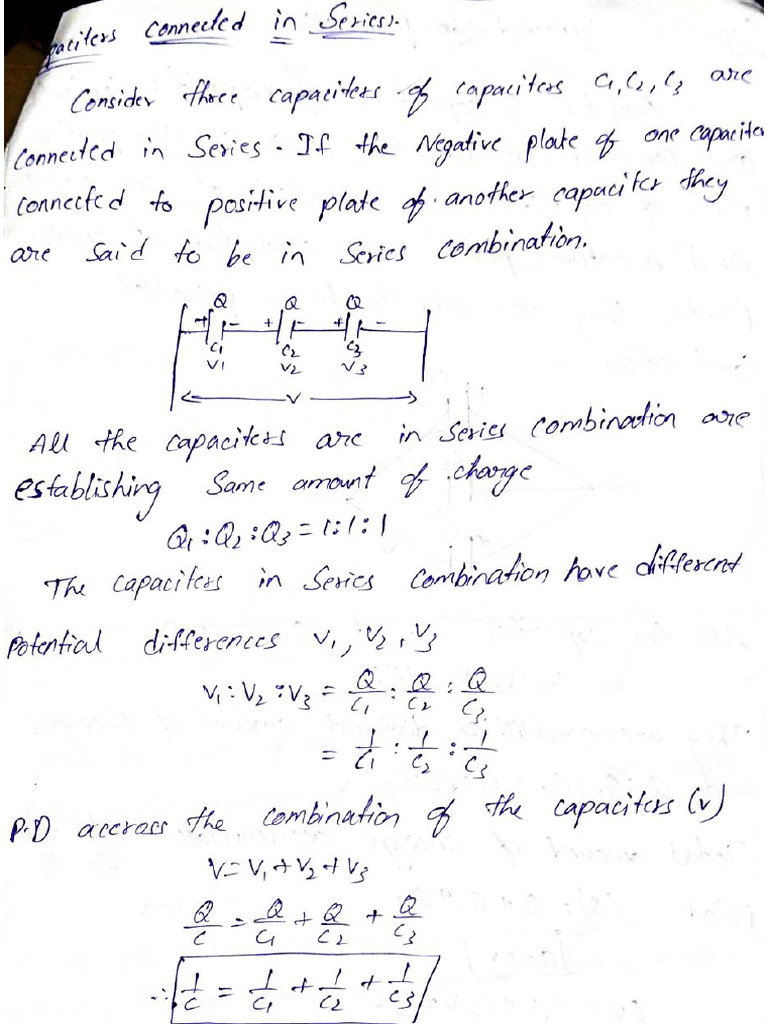 paciters connected in Series:-
Consider three capaciters of capaciters C1, C2, C3 are
connected in Series. If the Negative plate of one capaciter
connected to positive plate of another capaciter they
are said to be in series combination.
Q Q Q
+ - + - + -
C1 C2 C3
V1 V2 V3
V
All the capaciters are in series combination are
establishing same amount of charge
Q1 : Q2 : Q3 = 1 : 1 : 1
The capaciters in series combination have different
potential differences V1, V2, V3
V1 : V2 : V3 = Q/C1 : Q/C2 : Q/C3
= 1/C1 : 1/C2 : 1/C3
P.D accross the combination of the capaciters (V)
V = V1 + V2 + V3
Q/C = Q/C1 + Q/C2 + Q/C3
∴ 1/C = 1/C1 + 1/C2 + 1/C3